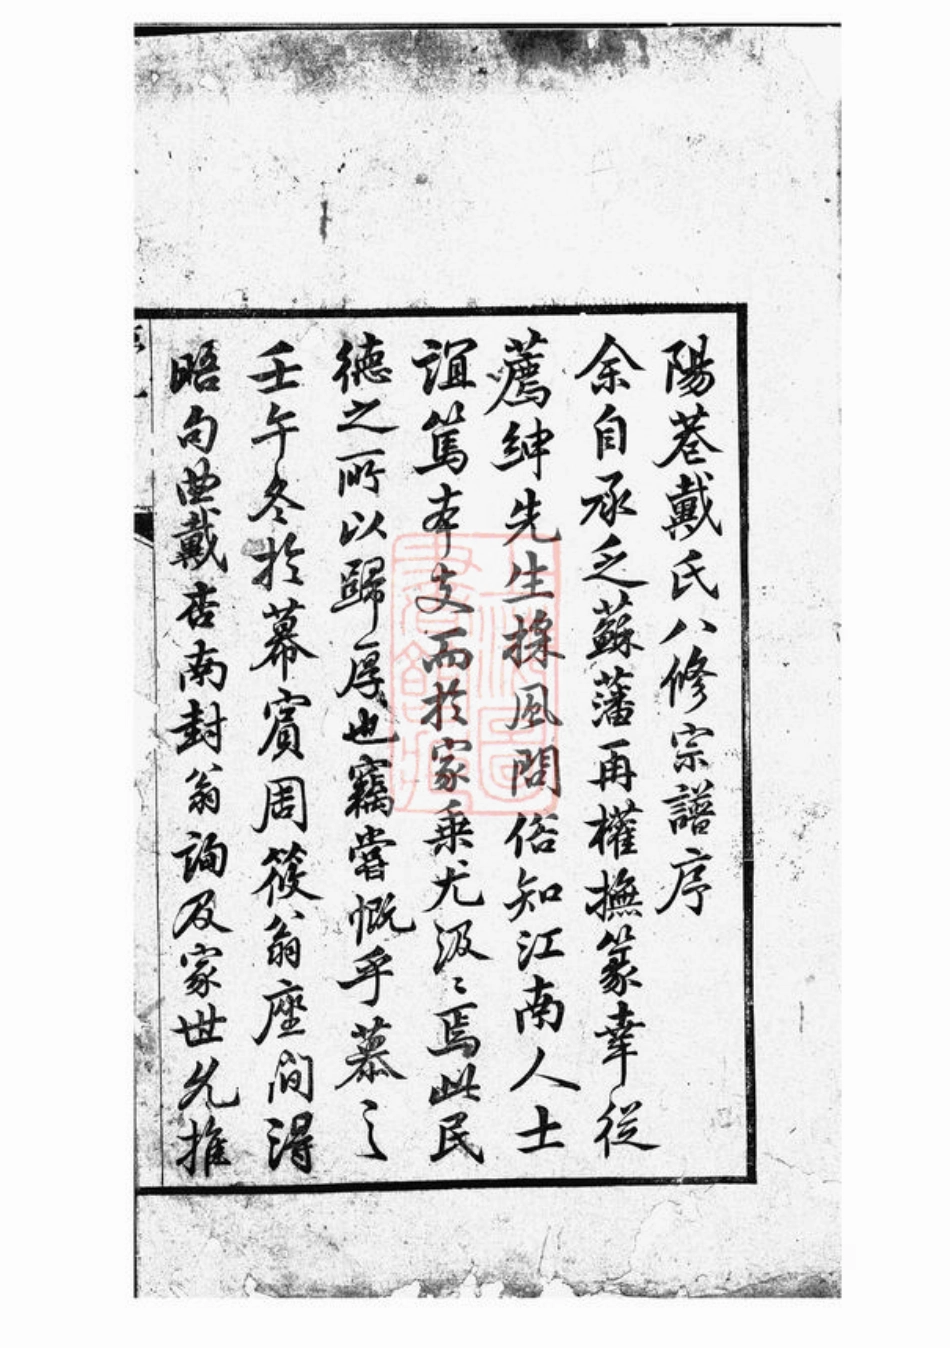 陽巷戴氏八修宗譜序
余自承乏蘇藩再權撫篆幸從
薦紳先生採風問俗知江南人士
誼篤本支而於家乘尤汲〻焉此民
德之所以歸厚也竊嘗慨乎慕之
壬午冬於幕賓周筱翁座間得
晤句曲戴杏南封翁詢及家世允推